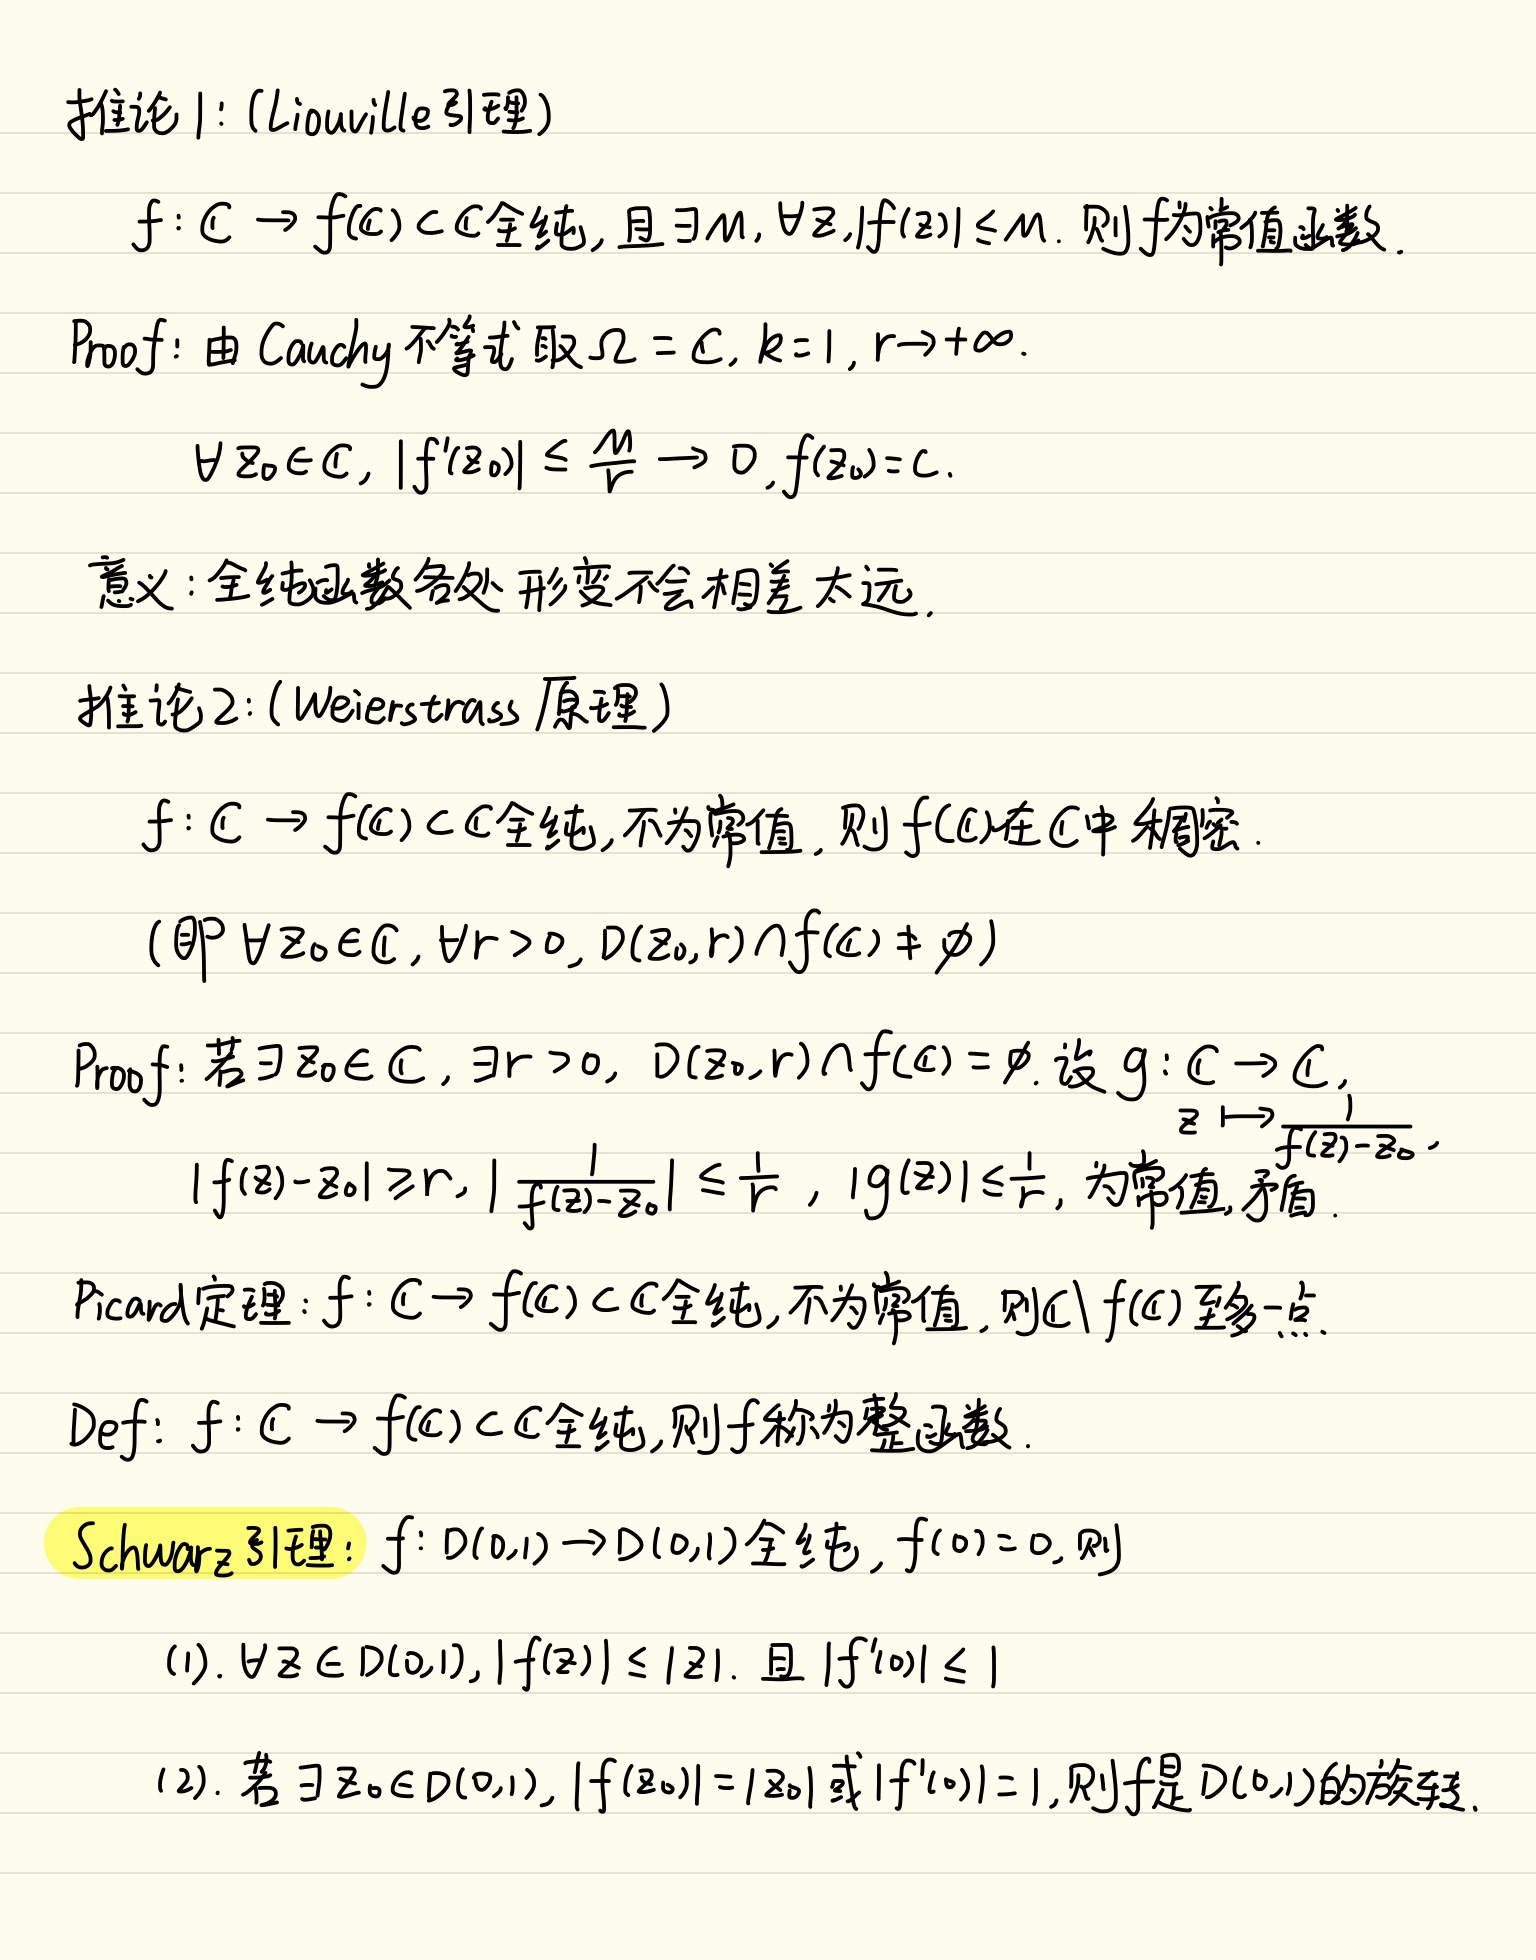 推论1:(Liouville引理)
f: ℂ → f(ℂ) ⊂ ℂ全纯, 且∃M, ∀z, |f(z)| ≤ M. 则f为常值函数.
Proof: 由Cauchy不等式取Ω = ℂ, k=1, r→+∞.
∀z₀∈ℂ, |f'(z₀)| ≤ M/r → 0, f(z₀)=c.
意义: 全纯函数各处形变不会相差太远.
推论2:(Weierstrass原理)
f: ℂ → f(ℂ) ⊂ ℂ全纯, 不为常值, 则f(ℂ)在ℂ中稠密.
(即∀z₀∈ℂ, ∀r>0, D(z₀,r)∩f(ℂ) ≠ ∅)
Proof: 若∃z₀∈ℂ, ∃r>0, D(z₀,r)∩f(ℂ) = ∅. 设g: ℂ → ℂ,
z ↦ 1/(f(z)-z₀).
|f(z)-z₀| ≥ r, |1/(f(z)-z₀)| ≤ 1/r, |g(z)| ≤ 1/r, 为常值, 矛盾.
Picard定理: f: ℂ → f(ℂ) ⊂ ℂ全纯, 不为常值, 则ℂ\f(ℂ)至多一点.
Def: f: ℂ → f(ℂ) ⊂ ℂ全纯, 则f称为整函数.
Schwarz引理: f: D(0,1) → D(0,1)全纯, f(0)=0, 则
(1). ∀z∈D(0,1), |f(z)| ≤ |z|. 且|f'(0)| ≤ 1
(2). 若∃z₀∈D(0,1), |f(z₀)|=|z₀|或|f'(0)|=1, 则f是D(0,1)的旋转.